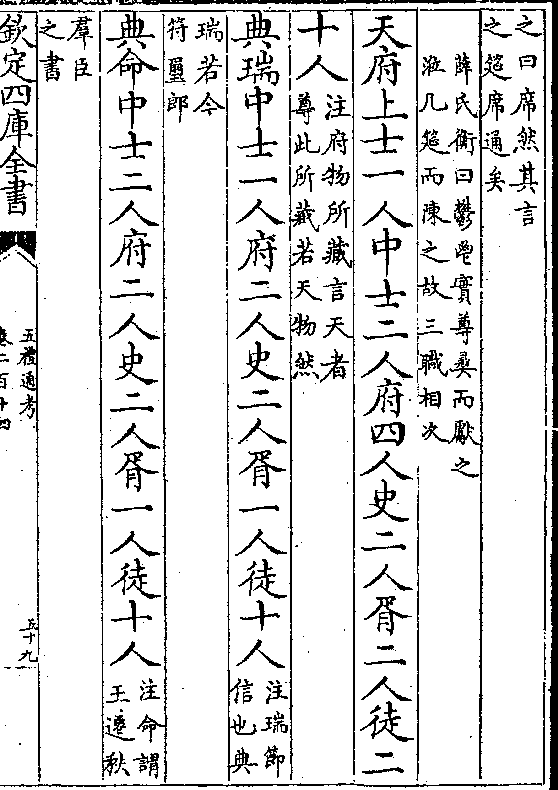 之曰席然其言
之筵席通矣
薛氏衡曰鬱鬯實尊彞而獻之
涖几筵而陳之故三職相次
天府上士一人中士二人府四人史二人胥二人徒二
十人注府物所藏言天者
尊此所藏若天物然
典瑞中士一人府二人史二人胥一人徒十人注瑞節
信也典
瑞若今
符璽郎
典命中士二人府二人史二人胥一人徒十人注命謂
王遷秩
羣臣
之書
欽定四庫全書
五禮通考
卷二百十四
五十九